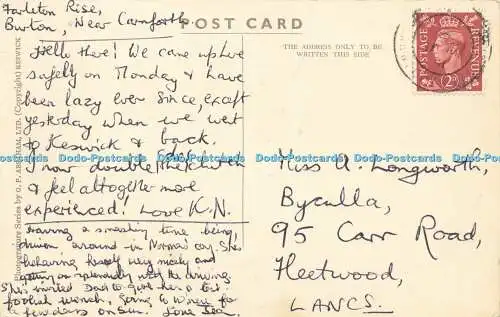 Farleton Rise,
Burton, Near Carnforth.
POST CARD
THE ADDRESS ONLY TO BE
WRITTEN THIS SIDE
POSTAGE
REVENUE
2D
Photogravure Series by G. P. ABRAHAM, LTD. (Copyright) KESWICK
Hello there! We came up here
safely on Monday & have
been lazy ever since, except
yesterday when we went
to Keswick & back.
I now double the clutch
& feel altogether more
experienced! Love K.N.
Having a smashing time being
driven around in Norma's car. She's
behaving herself very nicely and
getting on splendidly with the driving.
She's invited Dad to give her a bit
foolish wench, going to for
a few days on Sun. Love
Miss U. Longworth,
Byculla,
95 Carr Road,
Fleetwood,
LANCS.
Dodo-Postcards Dodo-Postcards Dodo-Postcards Dodo-Postcards Dodo-Postcards